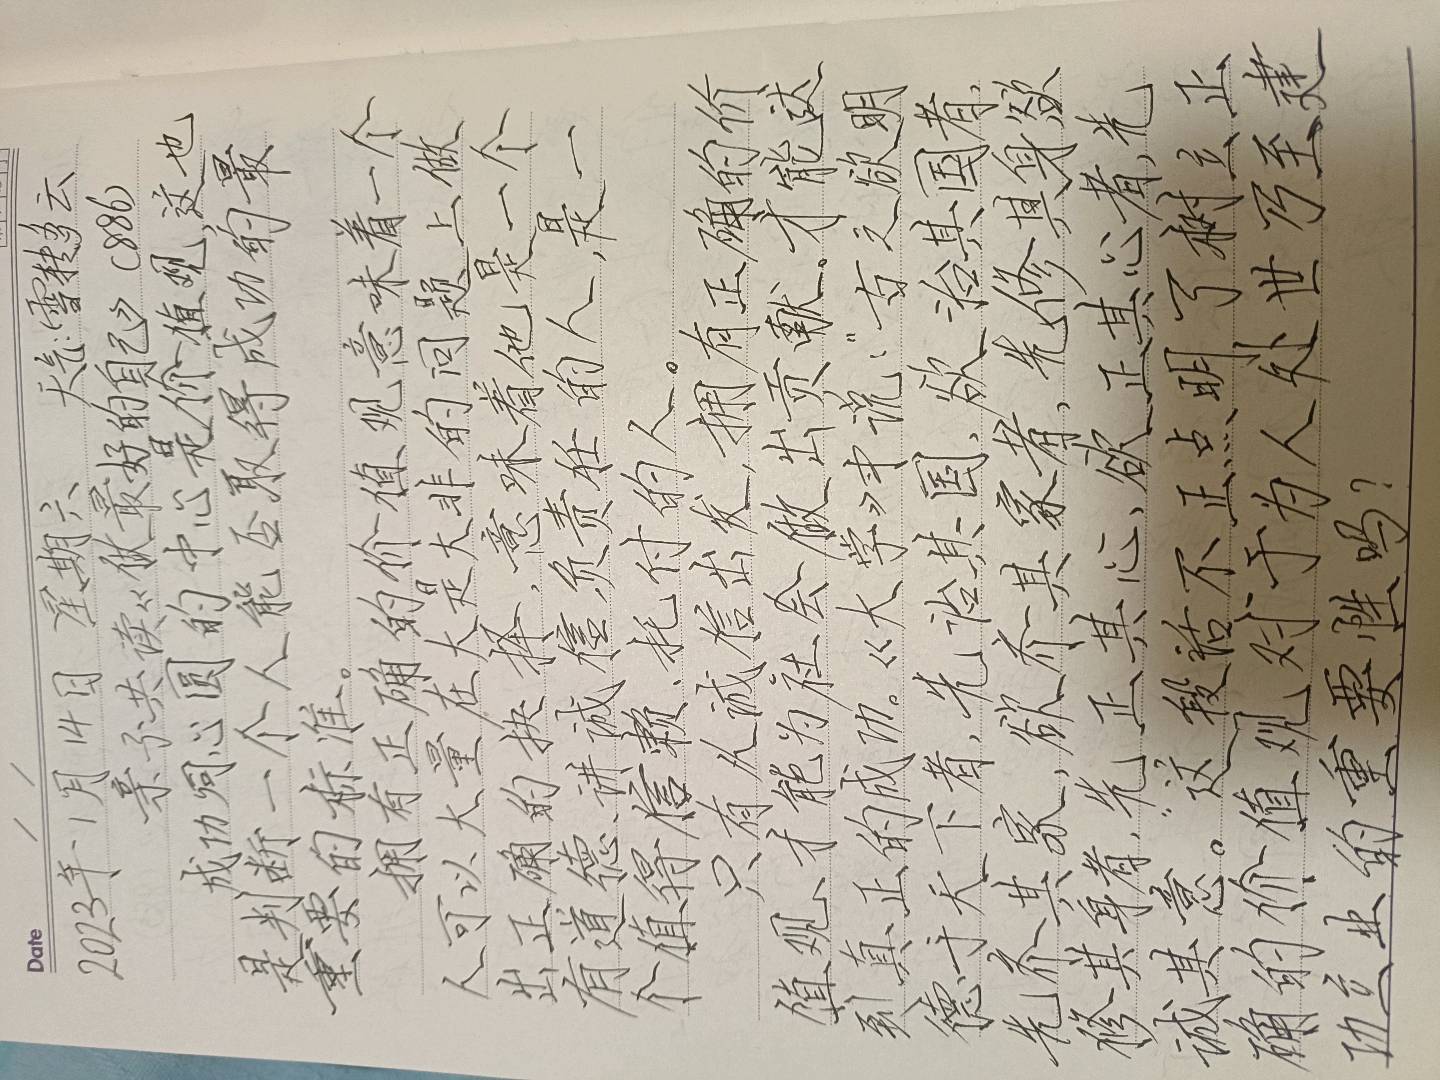 Date
2023年1月14日 星期六 天气:雪转多云
亲子共读《做最好的自己》(886)
成功同心圆的中心是价值观,这也
是判断一个人能否取得成功的最
重要的标准。
拥有正确的价值观意味着一个
人可以大量在大是大非的问题上做
出正确的抉择,意味着他是一个
有道德、讲诚信、负责任的人,是一
个值得信赖、托付的人。
只有从诚信出发,拥有正确的价
值观,才能为社会做出贡献。才能达
到真正的成功。《大学》中说:“古之欲明
德于天下者,先治其国,欲治其国者,
先齐其家,欲齐其家者,先修其身欲
修其身者,先正其心,欲正其心者,先
诚其意。”这段话不正点明了树立正
确的价值观对于为人处世乃至建
功立业的重要性吗?